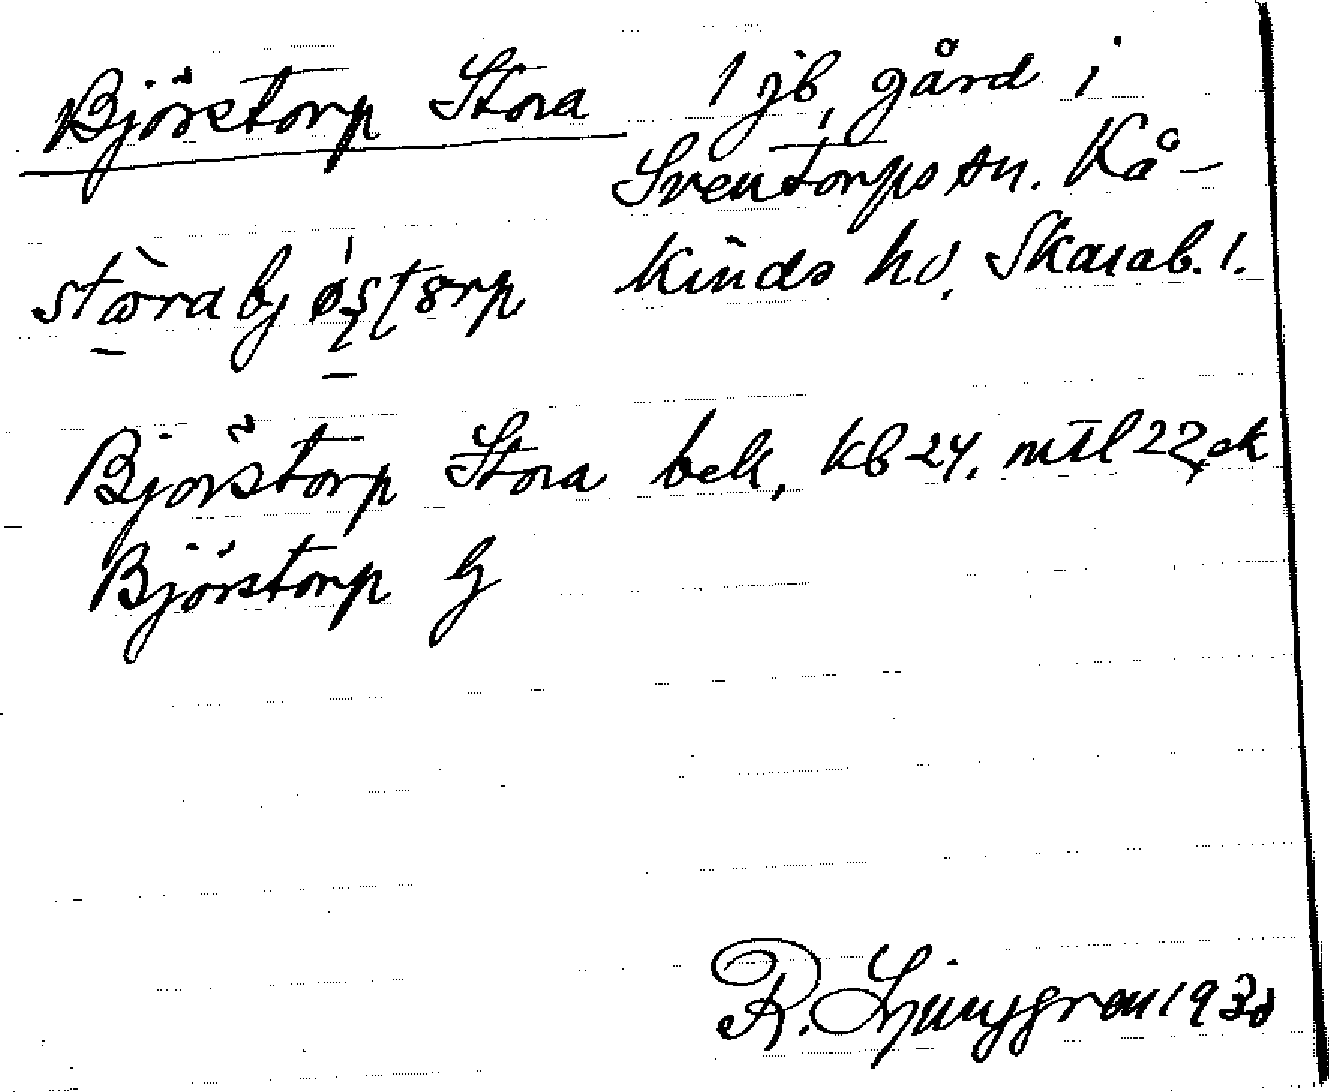 Björstorp Stora 1 jb, gård i
Sventorps sn. Kå-
kinds hd, Skarab. l.
Björstorp Stora bek, kb 24, mtl 22, ek
Björstorp G
R. Ljunggren 1930